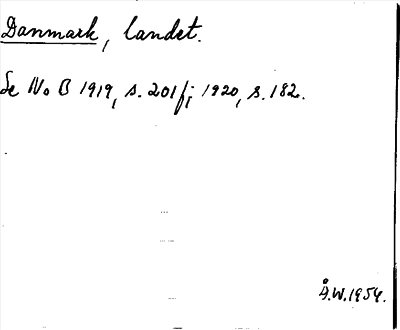 Danmark, landet.
Se No B 1919, s. 201f; 1920, s. 182.
Å.W. 1954.